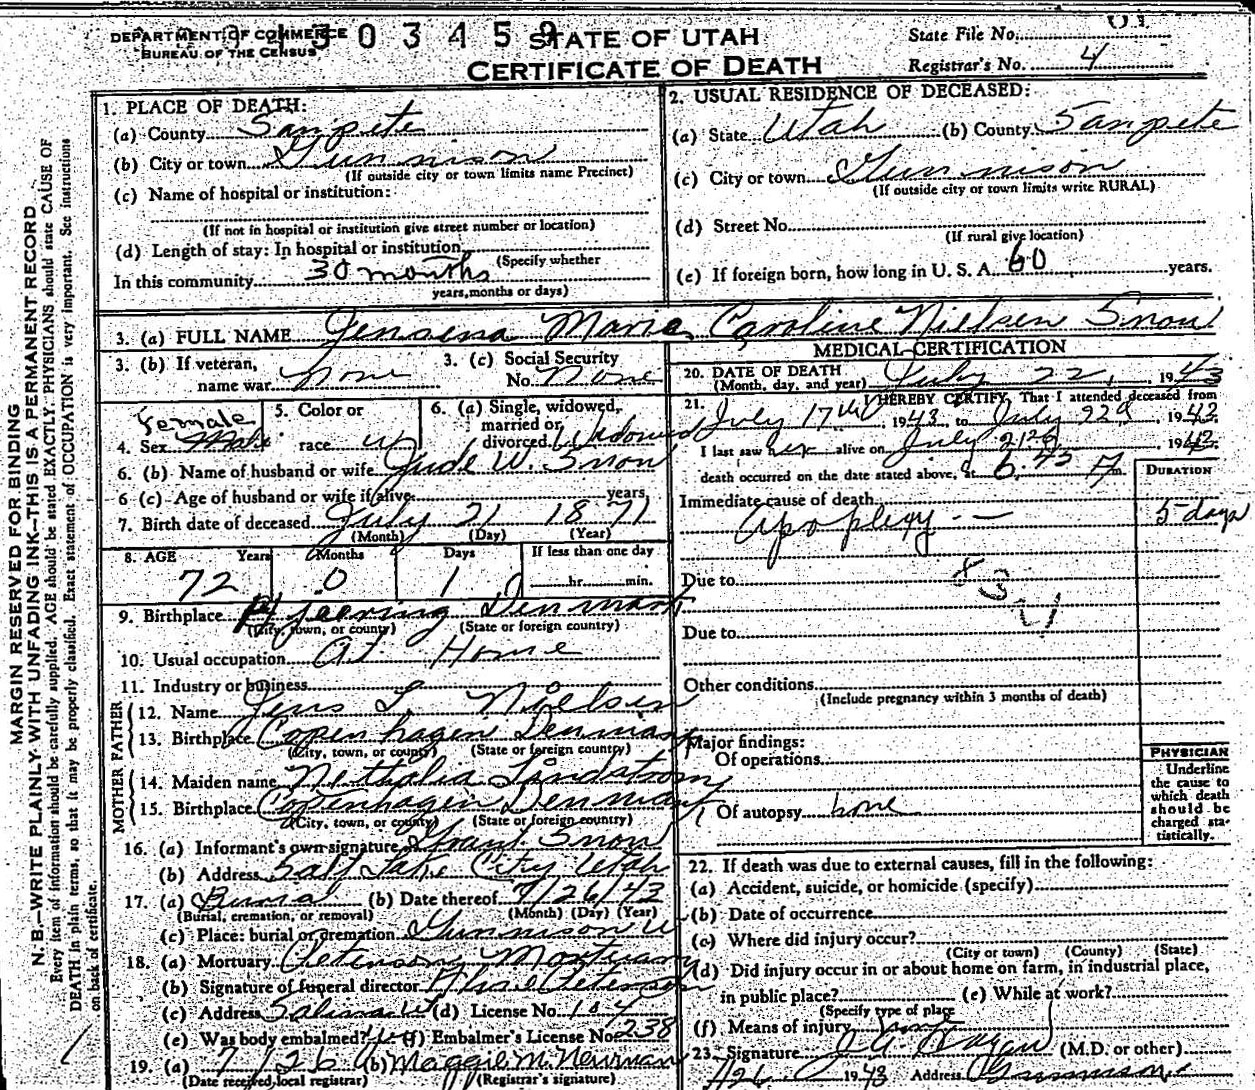 DEPARTMENT OF COMMERCE
BUREAU OF THE CENSUS
303459
STATE OF UTAH
CERTIFICATE OF DEATH
State File No.
Registrar's No. 4
MARGIN RESERVED FOR BINDING
N. B.—WRITE PLAINLY, WITH UNFADING INK—THIS IS A PERMANENT RECORD
Every item of information should be carefully supplied. AGE should be stated EXACTLY. PHYSICIANS should state CAUSE OF
DEATH in plain terms, so that it may be properly classified. Exact statement of OCCUPATION is very important. See instructions
on back of certificate.
1. PLACE OF DEATH:
(a) County Sanpete
(b) City or town Gunnison
(If outside city or town limits name Precinct)
(c) Name of hospital or institution:
(If not in hospital or institution give street number or location)
(d) Length of stay: In hospital or institution
(Specify whether
In this community 30 months
years, months or days)
2. USUAL RESIDENCE OF DECEASED:
(a) State Utah (b) County Sanpete
(c) City or town Gunnison
(If outside city or town limits write RURAL)
(d) Street No.
(If rural give location)
(e) If foreign born, how long in U. S. A. 60 years.
3. (a) FULL NAME Jensena Marie Caroline Nielsen Snow
3. (b) If veteran,
name war none
3. (c) Social Security
No. None
Female
4. Sex Male
5. Color or
race w
6. (a) Single, widowed,
married or
divorced Widowed
6. (b) Name of husband or wife Jude W. Snow
6 (c) Age of husband or wife if alive years
7. Birth date of deceased July 21 1871
(Month) (Day) (Year)
8. AGE Years Months Days If less than one day
72 0 1 hr. min.
9. Birthplace Hjoerring Denmark
(City, town, or county) (State or foreign country)
10. Usual occupation At Home
11. Industry or business
FATHER
12. Name Jens L. Nielsen
13. Birthplace Copenhagen Denmark
(City, town, or county) (State or foreign country)
MOTHER
14. Maiden name Nethalia Lindstrom
15. Birthplace Copenhagen Denmark
(City, town, or county) (State or foreign country)
16. (a) Informant's own signature Grant Snow
(b) Address Salt Lake City Utah
17. (a) Burial (b) Date thereof 7/26/43
(Burial, cremation, or removal) (Month) (Day) (Year)
(c) Place: burial or cremation Gunnison U
18. (a) Mortuary Petersons Mortuary
(b) Signature of funeral director Peterson
(c) Address Salina Ut (d) License No. 104
(e) Was body embalmed? (f) Embalmer's License No. 238
19. (a) 7/26 (b) Maggie M. Newman
(Date received local registrar) (Registrar's signature)
MEDICAL CERTIFICATION
20. DATE OF DEATH
(Month, day, and year) July 22, 1943
21. I HEREBY CERTIFY, That I attended deceased from
July 17th 1943, to July 22d, 1943
I last saw her alive on July 21st, 1943
death occurred on the date stated above, at m.
Immediate cause of death DURATION
Apoplexy 5 days
Due to
83
Due to
Other conditions
(Include pregnancy within 3 months of death)
Major findings:
Of operations
Of autopsy none
PHYSICIAN
Underline
the cause to
which death
should be
charged sta-
tistically.
22. If death was due to external causes, fill in the following:
(a) Accident, suicide, or homicide (specify)
(b) Date of occurrence
(c) Where did injury occur?
(City or town) (County) (State)
(d) Did injury occur in or about home on farm, in industrial place,
in public place? (e) While at work?
(Specify type of place
(f) Means of injury
23. Signature (M.D. or other)
7/26 1943 Address Gunnison